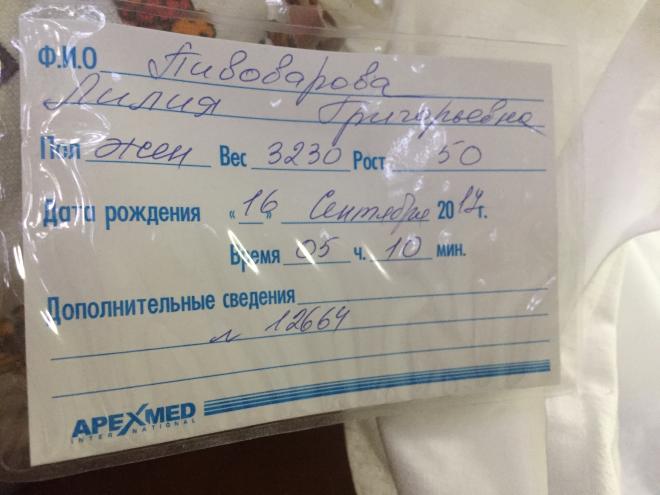 Ф.И.О Пивоварова
Лилия Григорьевна
Пол жен Вес 3230 Рост 50
Дата рождения «16» Сентября 2017г.
Время 05 ч. 10 мин.
Дополнительные сведения
N 12664
APEXMED
INTERNATIONAL